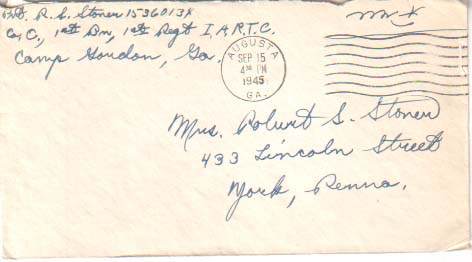 Pvt. R. S. Stoner 15360138
Co. C, 1st Bn, 1st Regt I.A.R.T.C.
Camp Gordon, Ga.
AUGUSTA
SEP 15
4 PM
1945
GA.
Mrs. Robert S. Stoner
433 Lincoln Street
York, Penna.